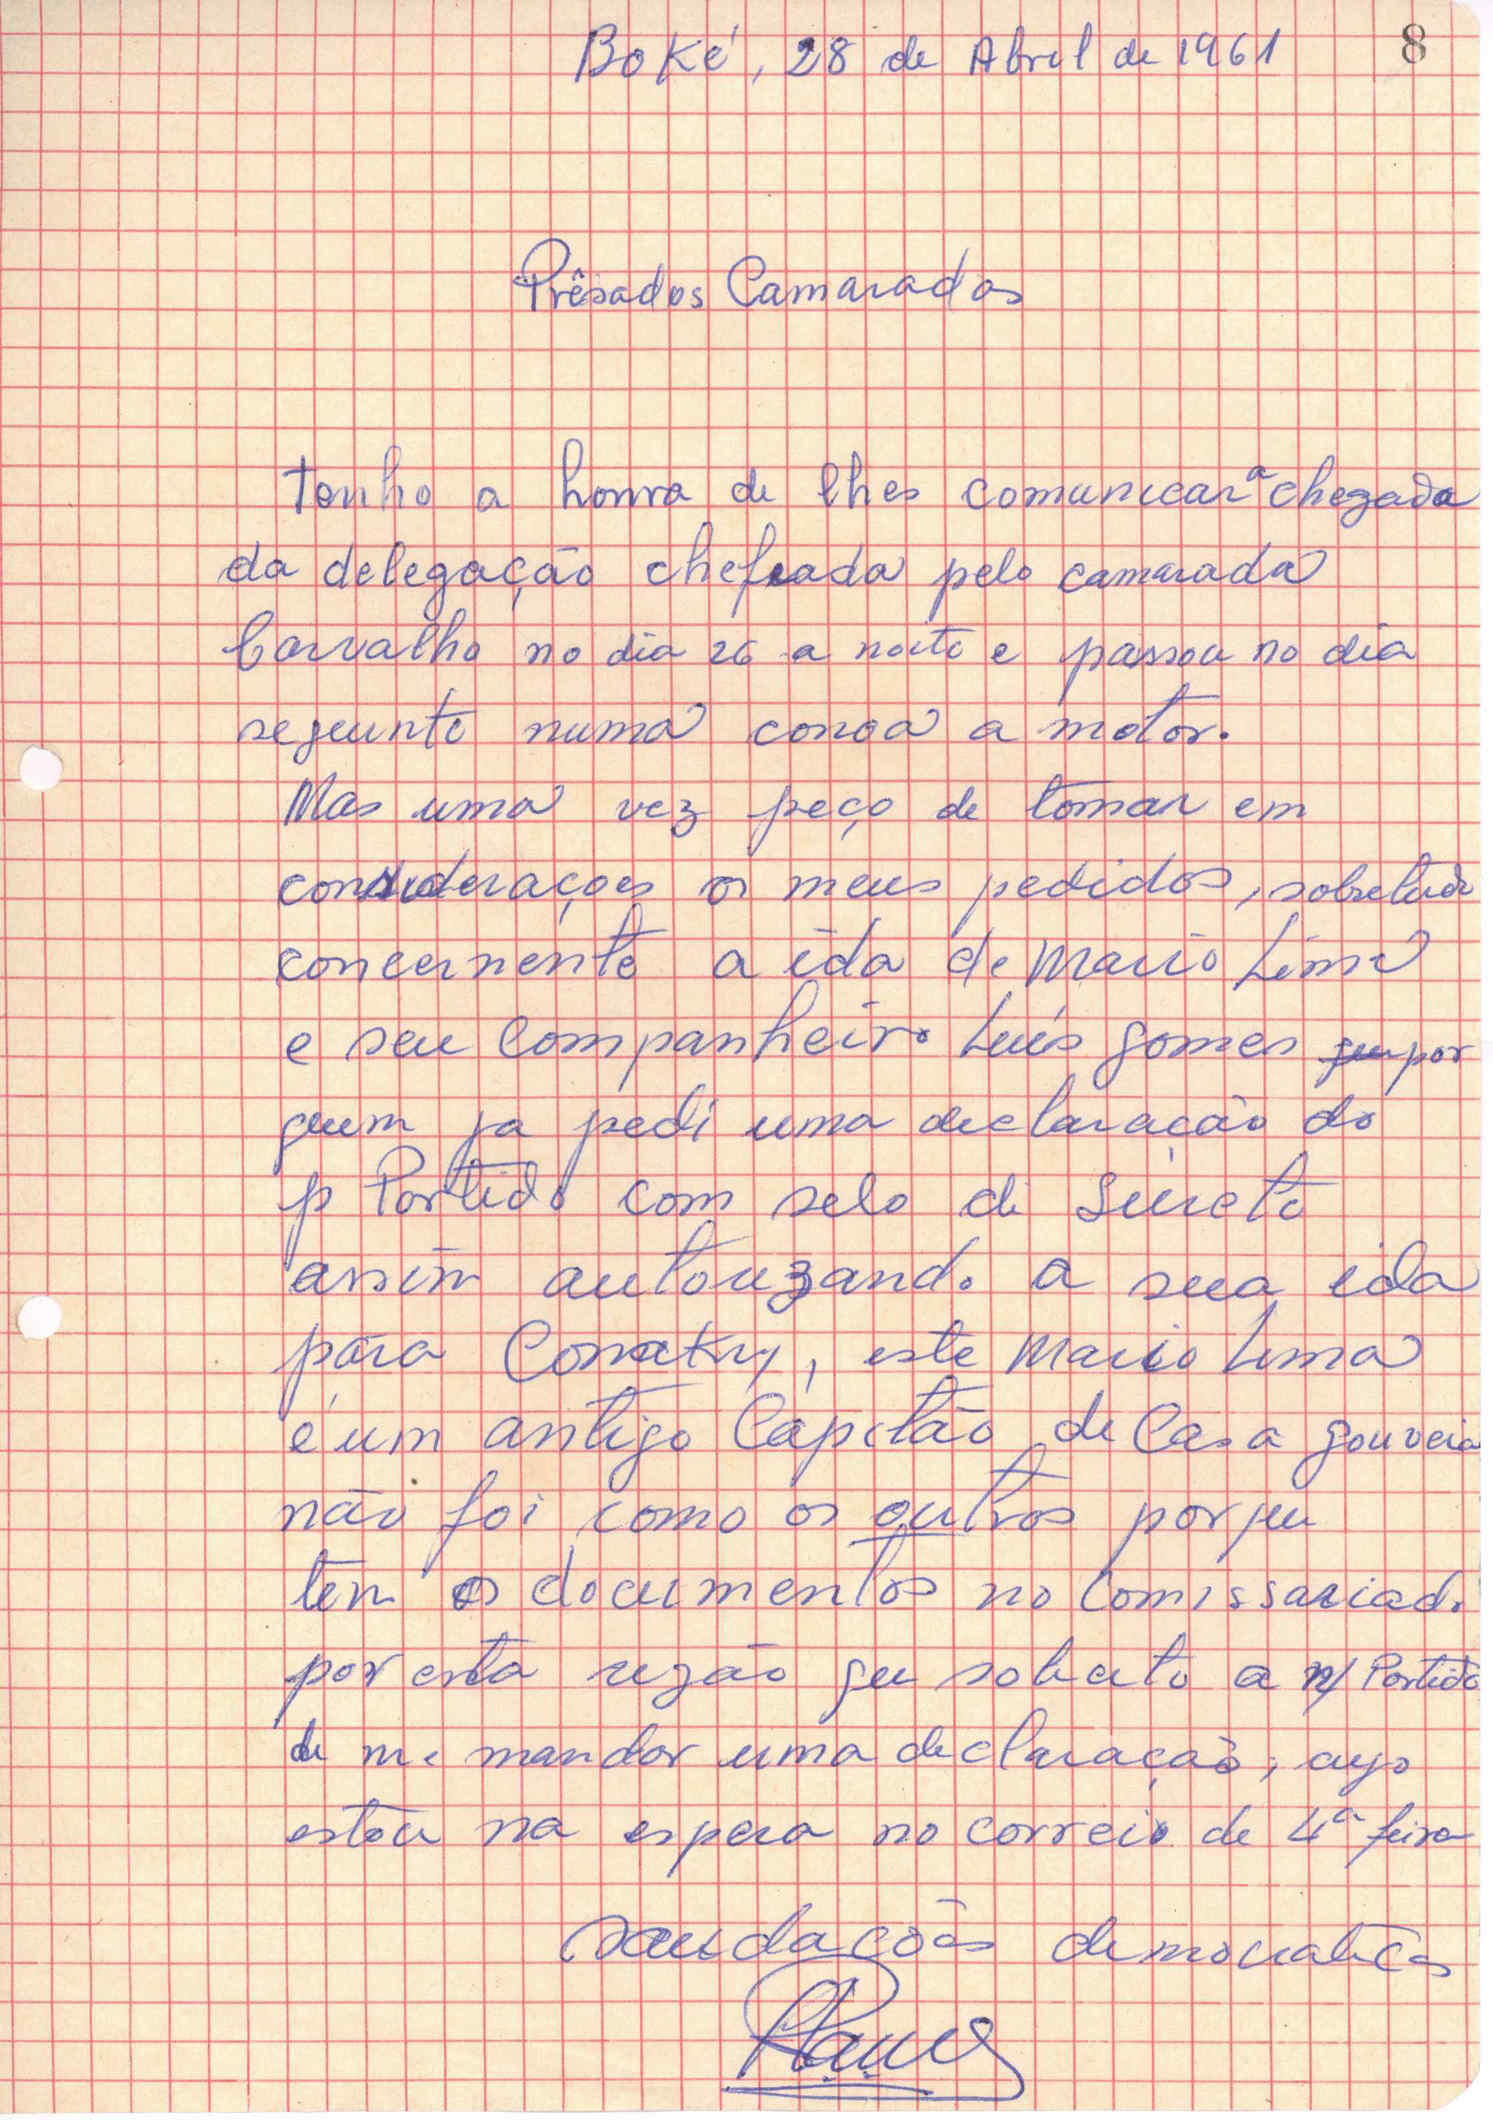 8
Boké, 28 de Abril de 1961
Prêsados Camaradas
Tenho a honra de lhes comunicar a chegada
da delegação chefiada pelo camarada
Carvalho no dia 26 a noite e passou no dia
seguinte numa canoa a motor.
Mas uma vez peço de tomar em
considerações os meus pedidos, sobretudo
concernente a ida de Mario Lima
e seu companheiro Luís Gomes por
quem ja pedi uma declaração do
p Partido com selo di Sureté
assim autorizando a sua ida
para Conakry, este Mario Lima
é um antigo Capitão de Casa Gouveia
não foi como os outros porque
tem os documentos no Comissariado
por esta rezão que solicito a n/ Partido
de me mandar uma declaração, cujo
estou na espera no correio de 4ª feira
saudações democraticas